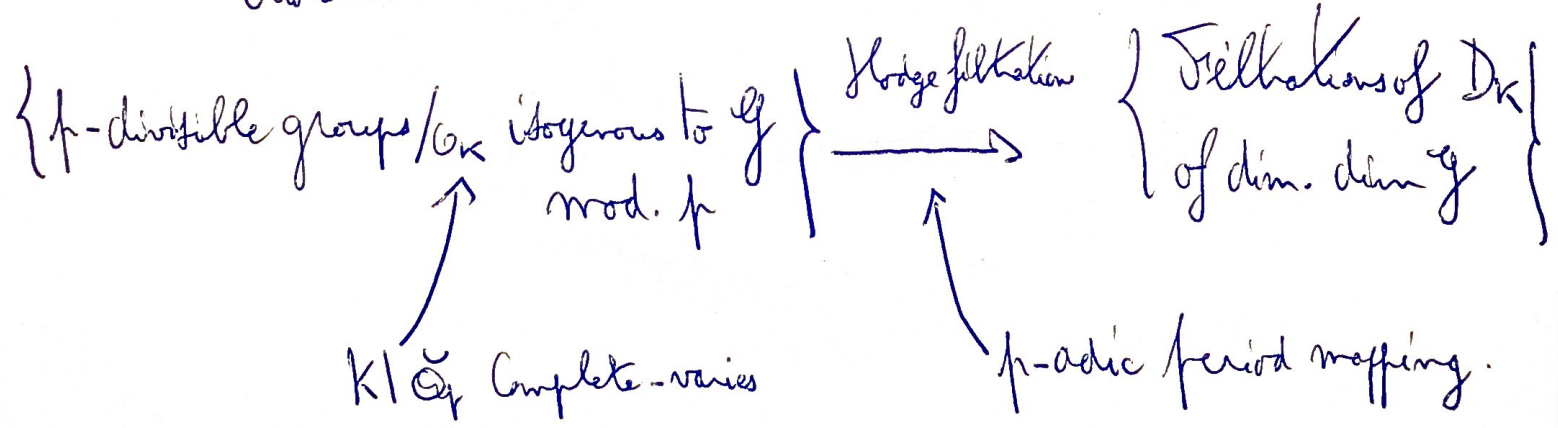 {p-divisible groups/O_K isogenous to 𝒢 mod. p} Hodge filtration → {Filtrations of D_K of dim. dim 𝒢}
K|Q̆_p Complete - varies
p-adic period mapping.